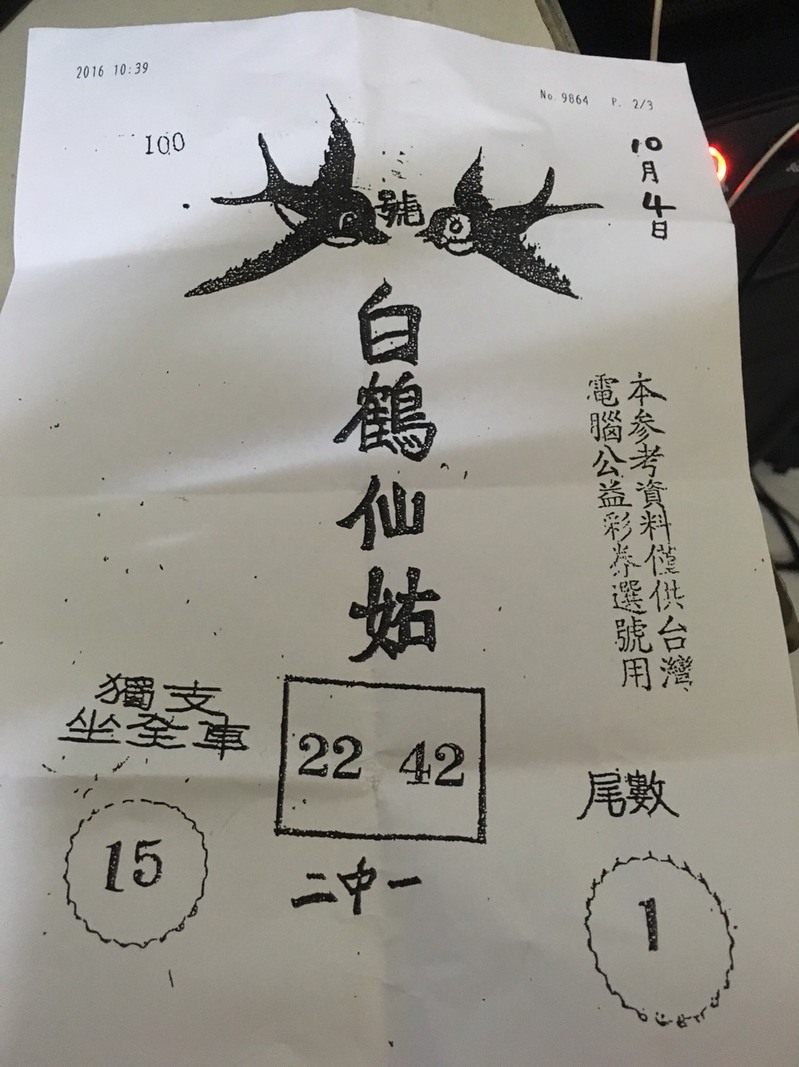 2016 10:39
No. 9864 P. 2/3
100
10月4日
號
白鶴仙姑
本參考資料僅供台灣
電腦公益彩券選號用
獨支
坐全車
15
22 42
二中一
尾數
1